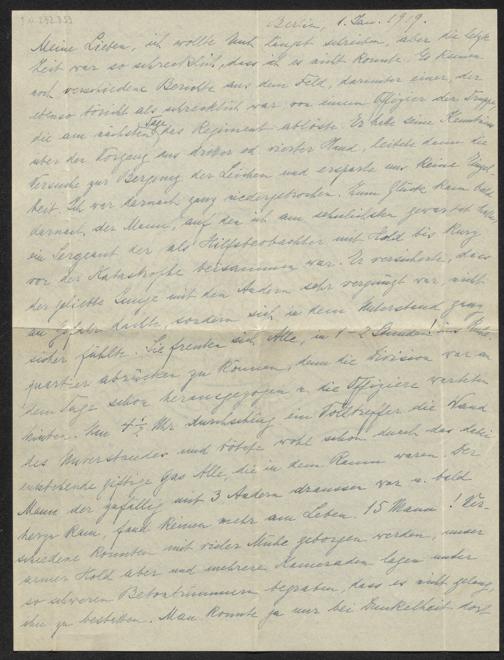 Berlin, 1. Jan. 1919.
Meine Lieben, ich wollte Euch längst schreiben, aber die letzte
Zeit war so schrecklich, dass ich es nicht konnte. Es kamen
noch verschiedene Berichte aus dem Feld, darunter einer, der
ebenso töricht als schrecklich war, von einem Offizier der Truppe,
die am nächsten Tage das Regiment ablöste. Er habe seine Kenntnis
über den Vorgang aus dritter od vierter Hand, leitete dann die
Versuche zur Bergung der Leichen und ersparte uns keine Einzel-
heit. Ich war darnach ganz niedergebrochen. Zum Glück kam bald
darnach der Mann, auf den ich am sehnlichsten gewartet hatte,
ein Sergeant der als Hilfsbeobachter mit Hold bis kurz
vor der Katastrophe beisammen war. Er versicherte, dass
der geliebte Junge mit den Andern sehr vergnügt war, nicht
an Gefahr dachte, sondern sich in dem Unterstand ganz
sicher fühlte. Sie freuten sich Alle, in 1-2 Stunden! ins
quartier abrücken zu können, denn die Division war an
dem Tage schon herausgezogen u die Offiziere warteten
hinten. Um 4½ Uhr durchschlug ein Volltreffer die Wand
des Unterstandes und tötete wohl schon durch das dabei
entstehende giftige Gas Alle, die in dem Raum waren. Der
Mann der zufällig mit 3 Andern draussen war u. bald
herzu kam, fand keinen mehr am Leben. 15 Mann! Ver-
schiedene konnten mit vieler Mühe geborgen werden, unser
armer Hold aber und mehrere Kameraden lagen unter
so schweren Betontrümmern begraben, dass es nicht gelang,
sie zu bestatten. Man konnte ja nur bei Dunkelheit dort